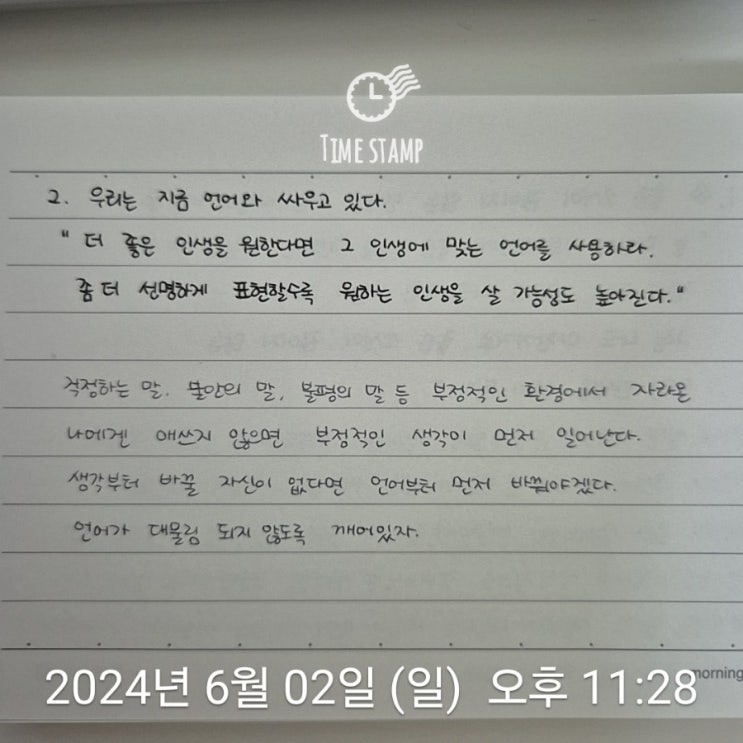 TIME STAMP
2. 우리는 지금 언어와 싸우고 있다.
" 더 좋은 인생을 원한다면 그 인생에 맞는 언어를 사용하라.
좀 더 선명하게 표현할수록 원하는 인생을 살 가능성도 높아진다."
걱정하는 말, 불안의 말, 불평의 말 등 부정적인 환경에서 자라온
나에겐 애쓰지 않으면 부정적인 생각이 먼저 일어난다.
생각부터 바꿀 자신이 없다면 언어부터 먼저 바꿔야겠다.
언어가 대물림 되지 않도록 깨어있자.
morning
2024년 6월 02일 (일) 오후 11:28